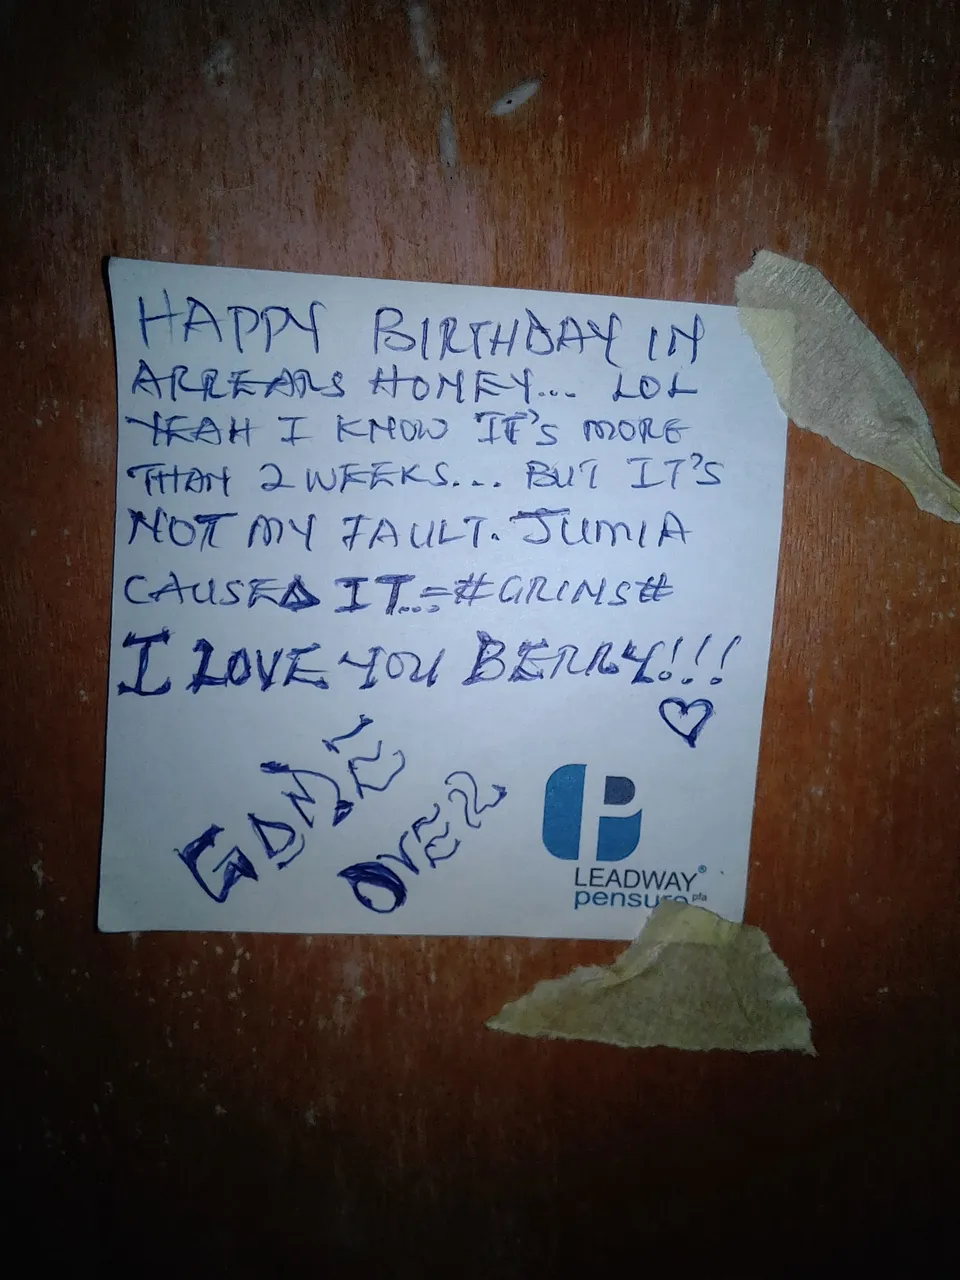 HAPPY BIRTHDAY IN
ARREARS HONEY... LOL
YEAH I KNOW IT'S MORE
THAN 2 WEEKS... BUT IT'S
NOT MY FAULT. JUMIA
CAUSED IT..=#GRINS#
I LOVE YOU BERRY!!!
GAME
OVER
LEADWAY®
pensure pfa